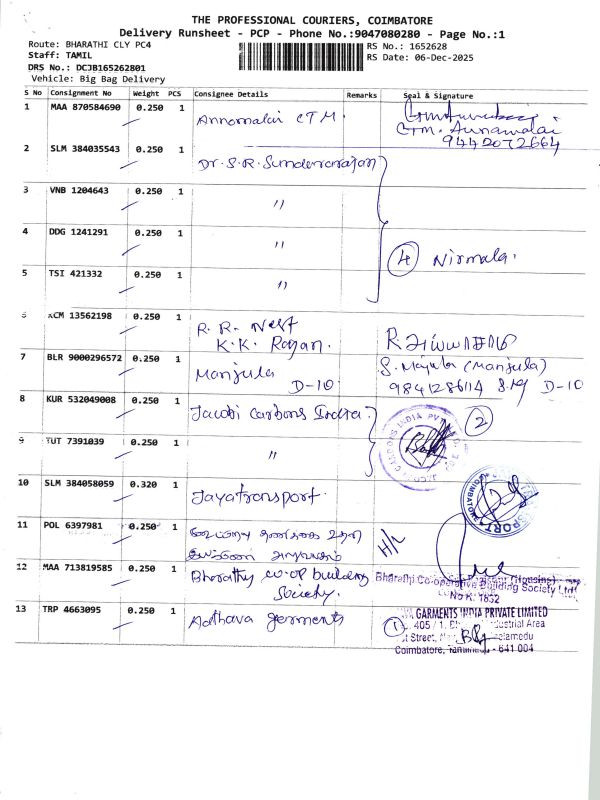 THE PROFESSIONAL COURIERS, COIMBATORE
Delivery Runsheet - PCP - Phone No.:9047080280 - Page No.:1
Route: BHARATHI CLY PC4
RS No.: 1652628
Staff: TAMIL
RS Date: 06-Dec-2025
DRS No.: DCJB165262801
Vehicle: Big Bag Delivery
S No Consignment No Weight PCS Consignee Details Remarks Seal & Signature
1 MAA 870584690 0.250 1 Annamalai CTM.
CTM. Annamalai
9442072664
2 SLM 384035543 0.250 1 Dr. S.R. Sundararajan
3 VNB 1204643 0.250 1 "
4 DDG 1241291 0.250 1 " 4 Nirmala.
5 TSI 421332 0.250 1 "
KCM 13562198 0.250 1 R. R. Nest
K.K. Rajan.
7 BLR 9000296572 0.250 1 Manjula D-10 S. (Manjula)
9841286114 D-10
8 KUR 532049008 0.250 1 Jacobi Carbons India 2
9 TUT 7391039 0.250 1 "
10 SLM 384058059 0.320 1 Jayatransport.
11 POL 6397981 0.250 1 H/L
12 MAA 713819585 0.250 1 Bharathy co-op building
Society.
Bharathi Co-operative Building Society Ltd
No K. 1832
13 TRP 4663095 0.250 1 Adhava garments 1
GARMENTS INDIA PRIVATE LIMITED
405 / 1, Industrial Area
Street,
Coimbatore, Tamilnadu - 641 004